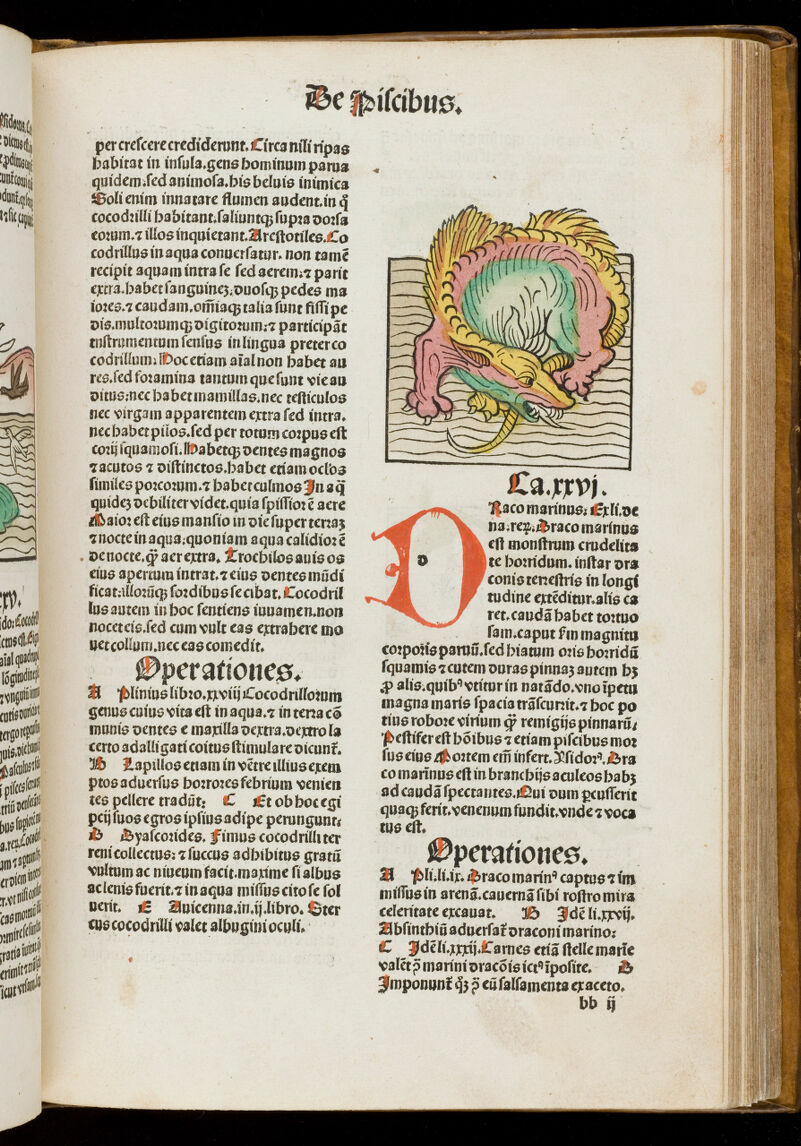 De Piscibus.
per crescere crediderunt. Circa nili ripas
habitat in insula. gens hominum parua
quidem. sed animosa. his beluis inimica
Soli enim innatare flumen audent. in q̃
cocodrilli habitant. saliuntqꝫ supra dorsa
eorum. ⁊ illos inquietant. Arestotiles. Co
codrillus in aqua conuersatur. non tamẽ
recipit aquam intra se sed aerem: ⁊ parit
extra. habet sanguineꝫ: duosqꝫ pedes ma
iores. ⁊ caudam. om̃iaqꝫ talia sunt fissi pe
dis. multorumqꝫ digitorum: ⁊ participãt
instrumentum sensus in lingua preter co
codrillum: Hoc etiam aĩal non habet au
res. sed foramina tantum que sunt vie au
ditus: nec habet mamillas. nec testiculos
nec virgam apparentem extra sed intra.
nec habet pilos. sed per totum corpus est
corij squamosi. Habetqꝫ dentes magnos
⁊ acutos ⁊ distinctos. habet etiam ocl'os
similes porcorum. ⁊ habet culmos In aq̃
quideꝫ debiliter videt. quia spissior ẽ aere
Maior est eius mansio in die super terraꝫ
⁊ nocte in aqua: quoniam aqua calidior ẽ
de nocte. ꝙ̃ aer extra. Trochilos auis os
eius apertum intrat. ⁊ eius dentes mũdi
ficat: illorũqꝫ sordibus se cibat. Cocodril
lus autem in hoc sentiens iuuamen. non
nocet eis. sed cum vult eas extrahere mo
uet collum. nec eas comedit.
Operationes.
A Plinius libro. xxviij Cocodrillorum
genus cuius vita est in aqua. ⁊ in terra cõ
munis dentes e maxilla dextra. dextro la
certo adalligati coitus stimulare dicunt᷑.
B Lapillos etiam in vẽtre illius exem
ptos aduersus horrores febrium venien
tes pellere tradũt: C Et ob hoc egi
pcij suos egros ipsius adipe perungunt:
D Dyascorides. Fimus cocodrilli ter
reni collectus: ⁊ succus adhibitus gratũ
vultum ac niueum facit. maxime si albus
ac lenis fuerit. ⁊ in aqua missus cito se sol
uerit. E Auicenna. in. ij. libro. Ster
cus cocodrilli valet albugini oculi.
Ca. xxvj.
d
Raco marinus: Ex li. de
na. reꝝ. Draco marinus
est monstrum crudelita
te horridum. instar dra
conis terrestris in longi
tudine extẽditur. alis ca
ret. caudã habet tortuo
sam. caput ẜm magnitu
corporis paruũ. sed hiatum oris horridũ
squamis ⁊ cutem duras pinnaꝫ autem hꝫ
ꝓ alis. quibꝰ vtitur in natãdo. vno ĩpetu
magna maris spacia trãscurrit. ⁊ hoc po
tius robore virium ꝙ̃ remigijs pinnarũ:
Pestifer est hõibus ⁊ etiam piscibus mor
sus eius Mortem em̃ infert. Ysidorꝰ. Dra
co marinus est in branchijs aculeos habꝫ
ad caudã spectantes. Qui dum ꝑcusserit
quaqꝫ ferit. venenum fundit. vnde ⁊ voca
tus est.
Operationes.
A Pli. li. ix. Draco marinꝰ captus ⁊ im
missus in arenã. cauernã sibi rostro mira
celeritate excauat. B Idẽ li. xxvij.
Absinthiũ aduersat᷑ draconi marino:
C Idẽ li. xxxij. Carnes etiã stelle marie
valẽt ꝯ̃ marini dracõis ictꝰ ĩposite. D
Imponunt᷑ qꝫ ꝯ̃ eũ salsamenta ex aceto.
bb ij